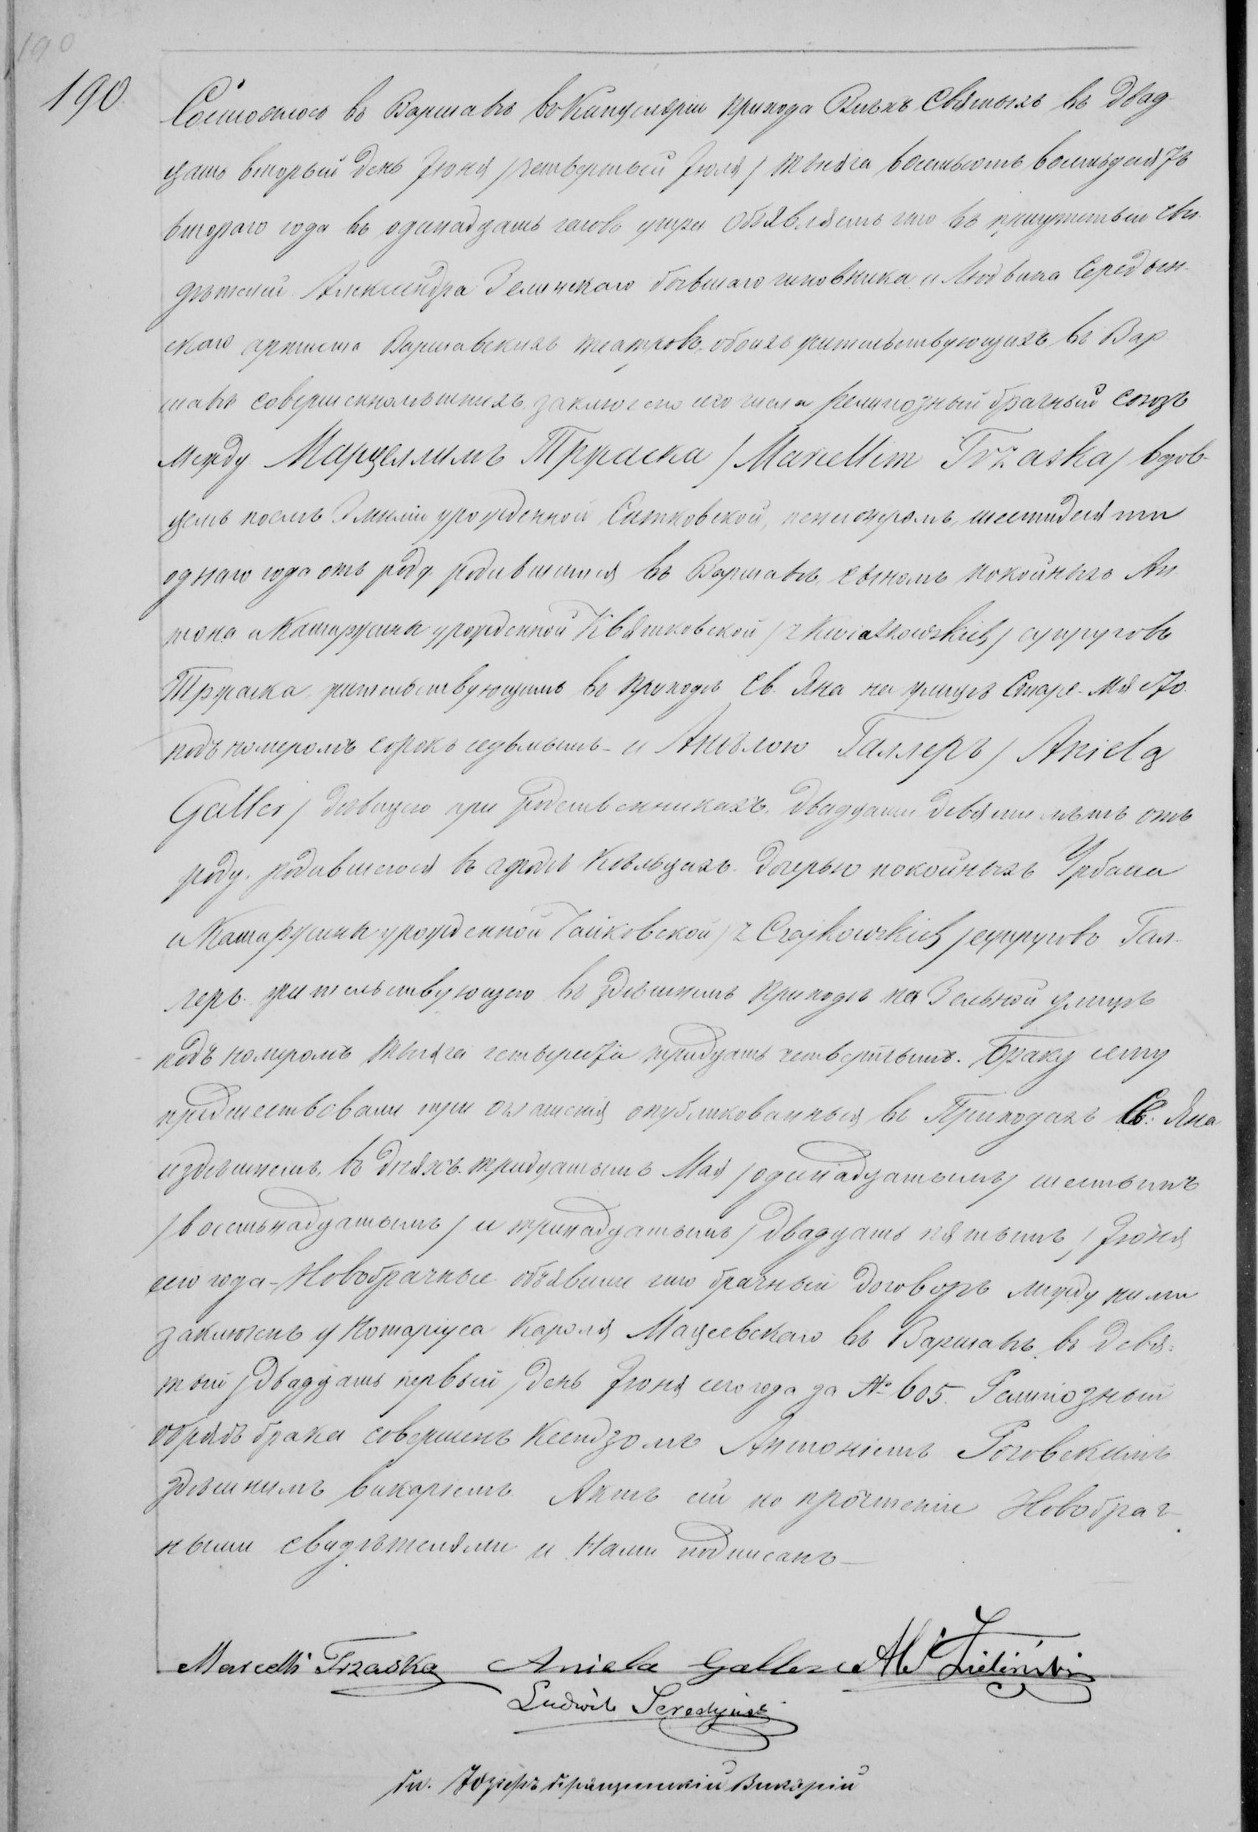 190
190
Состоялось въ Варшавѣ въ Канцеляріи прихода Всѣхъ Святыхъ въ двад
цать вторый день Іюня /четвертый Іюля/ тысяча восемьсотъ восемьдесятъ
втораго года въ одинадцать часовъ утра Объявляемъ что въ присутствіи сви
дѣтелей Александра Зелинскаго бывшаго чиновника и Людвика Середын
скаго артиста Варшавскихъ театровъ, обоихъ жительствующихъ въ Вар
шавѣ совершеннолѣтнихъ, заключенъ сего числа религіозный брачный союзъ
между Марцеллимъ Тржаска /Marcellim Trzaska/ вдов-
цемъ послѣ Эмиліи урожденной Ситковской, пенсіонеромъ, шестидесяти
одного года отъ роду родившимся въ Варшавѣ, сыномъ покойныхъ Ан
тона и Катаржины урожденной Квятковской /z Kwiatkowskich/ супруговъ
Тржаска, жительствующимъ въ приходѣ Св. Яна на улицѣ Старе-Място
подъ номеромъ сорокъ седьмымъ - и Анѣлею Галлеръ /Aniela
Galler/ дѣвицею при родственникахъ, двадцати девяти лѣтъ отъ
роду, родившеюся въ городѣ Кѣльцахъ, дочерью покойныхъ Урбана
и Катаржины урожденной Чайковской /z Czajkowskich/ супруговъ Гал-
леръ, жительствующею въ здѣшнемъ приходѣ на Зельной улицѣ
подъ номеромъ тысяча четыреста тридцать четвертымъ. Браку сему
предшествовали три оглашенія опубликованныя въ Приходахъ Св: Яна
и здѣшнемъ, въ дняхъ тридцатымъ Мая /одинадцатымъ/ шестымъ
/восемьнадцатымъ/ и тринадцатымъ /двадцать пятымъ/ Іюня
сего года - Новобрачные объявили что брачный договоръ между ними
заключенъ у Нотаріуса Кароля Мацеевскаго въ Варшавѣ въ девя-
тый /двадцать первый/ день Іюня сего года за № 605. Религіозный
обрядъ брака совершенъ Ксендзомъ Антоніемъ Роговскимъ
здѣшнимъ викаріемъ Актъ сей по прочтеніи Новобрач-
ными свидѣтелями и Нами подписанъ—
Marcelli Trzaska Aniela Galler Al Zieliński
Ludwik Seredyński
Кс. Іозефъ Викарій